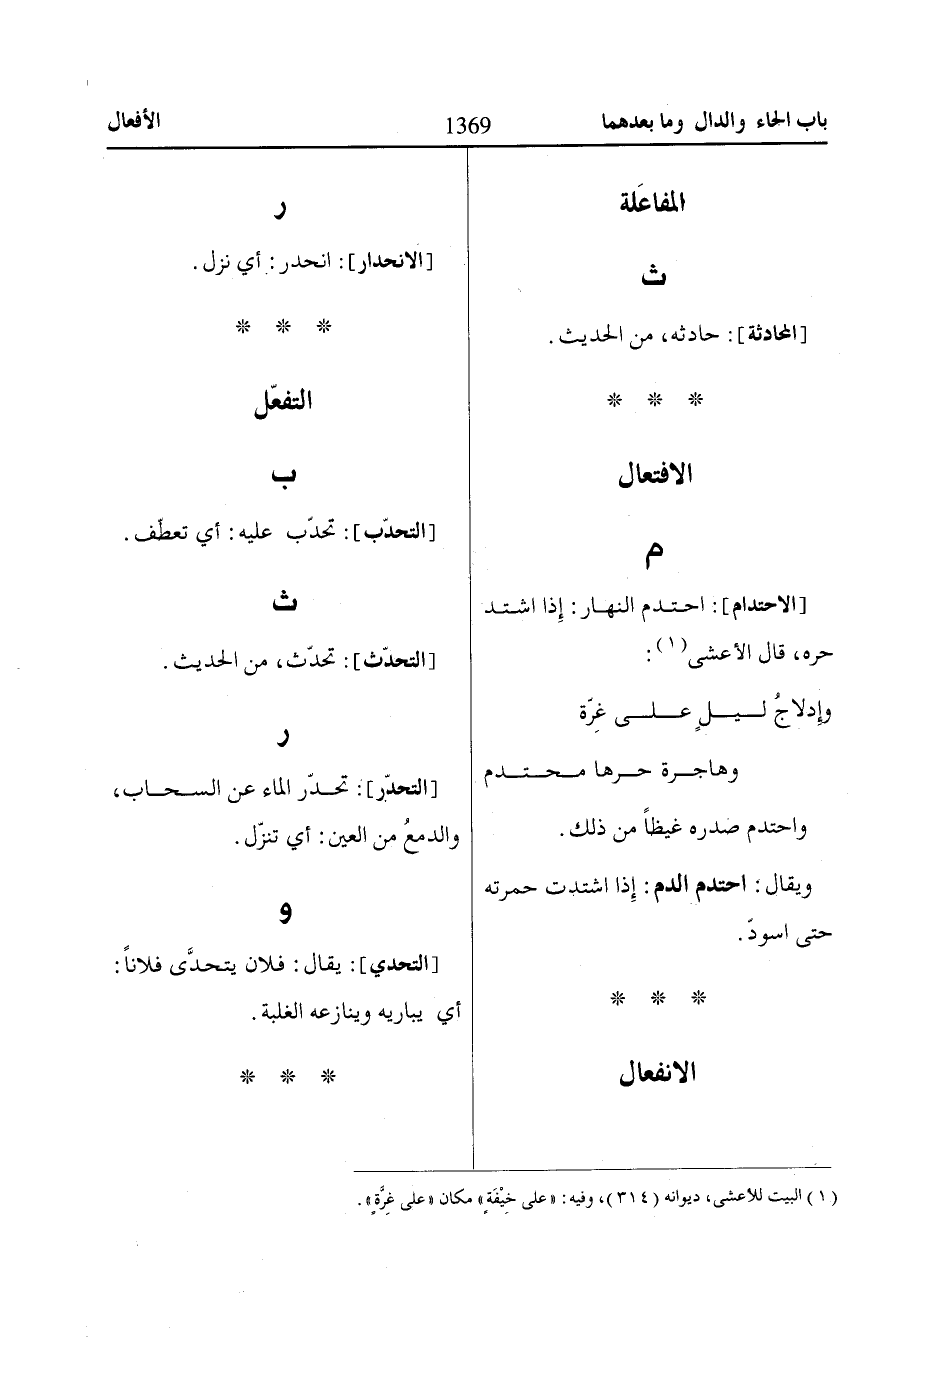 باب الحاء والدال وما بعدهما 1369 الأفعال
المفاعَلة
ث
[المحادثة]: حادثه، من الحديث.
* * *
الافتعال
م
[الاحتدام]: احتدم النهار: إذا اشتد
حره، قال الأعشى(١):
وإدلاجُ ليلٍ على غِرّة
وهاجرة حرها محتدم
واحتدم صدره غيظاً من ذلك.
ويقال: احتدم الدم: إذا اشتدت حمرته
حتى اسودّ.
* * *
الانفعال
ر
[الانحدار]: انحدر: أي نزل.
* * *
التفعّل
ب
[التحدّب]: تحدّب عليه: أي تعطّف.
ث
[التحدّث]: تحدّث، من الحديث.
ر
[التحدّر]: تحدّر الماء عن السحاب،
والدمعُ من العين: أي تنزّل.
و
[التحدي]: يقال: فلان يتحدَّى فلاناً:
أي يباريه وينازعه الغلبة.
* * *
(١) البيت للأعشى، ديوانه (٣١٤)، وفيه: «على خِيْفَةٍ» مكان «على غِرَّةٍ».